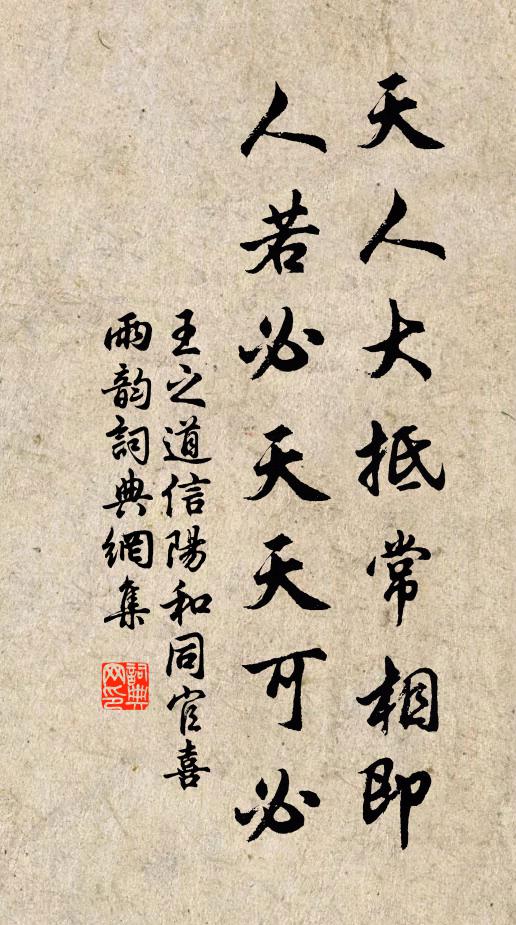 天人大抵常相即
人若必天天可必
王之道信陽和同官喜
雨韵詞典網集
詞典網印